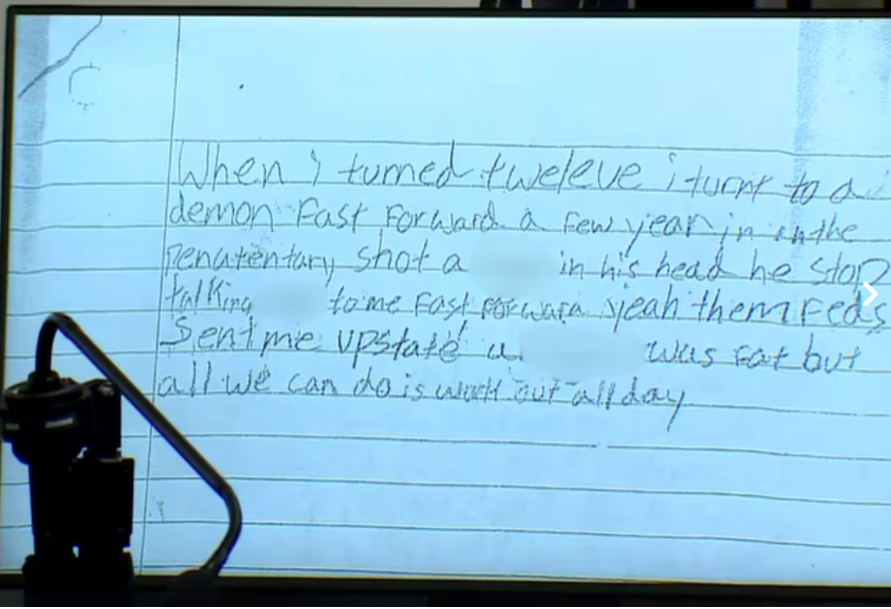 When i turned tweleve i turnt to a
demon fast forward a few year in in the
penatentary shot a in his head he stop
talking to me fast forward yeah them feds
Sent me upstate a was fat but
all we can do is work out all day